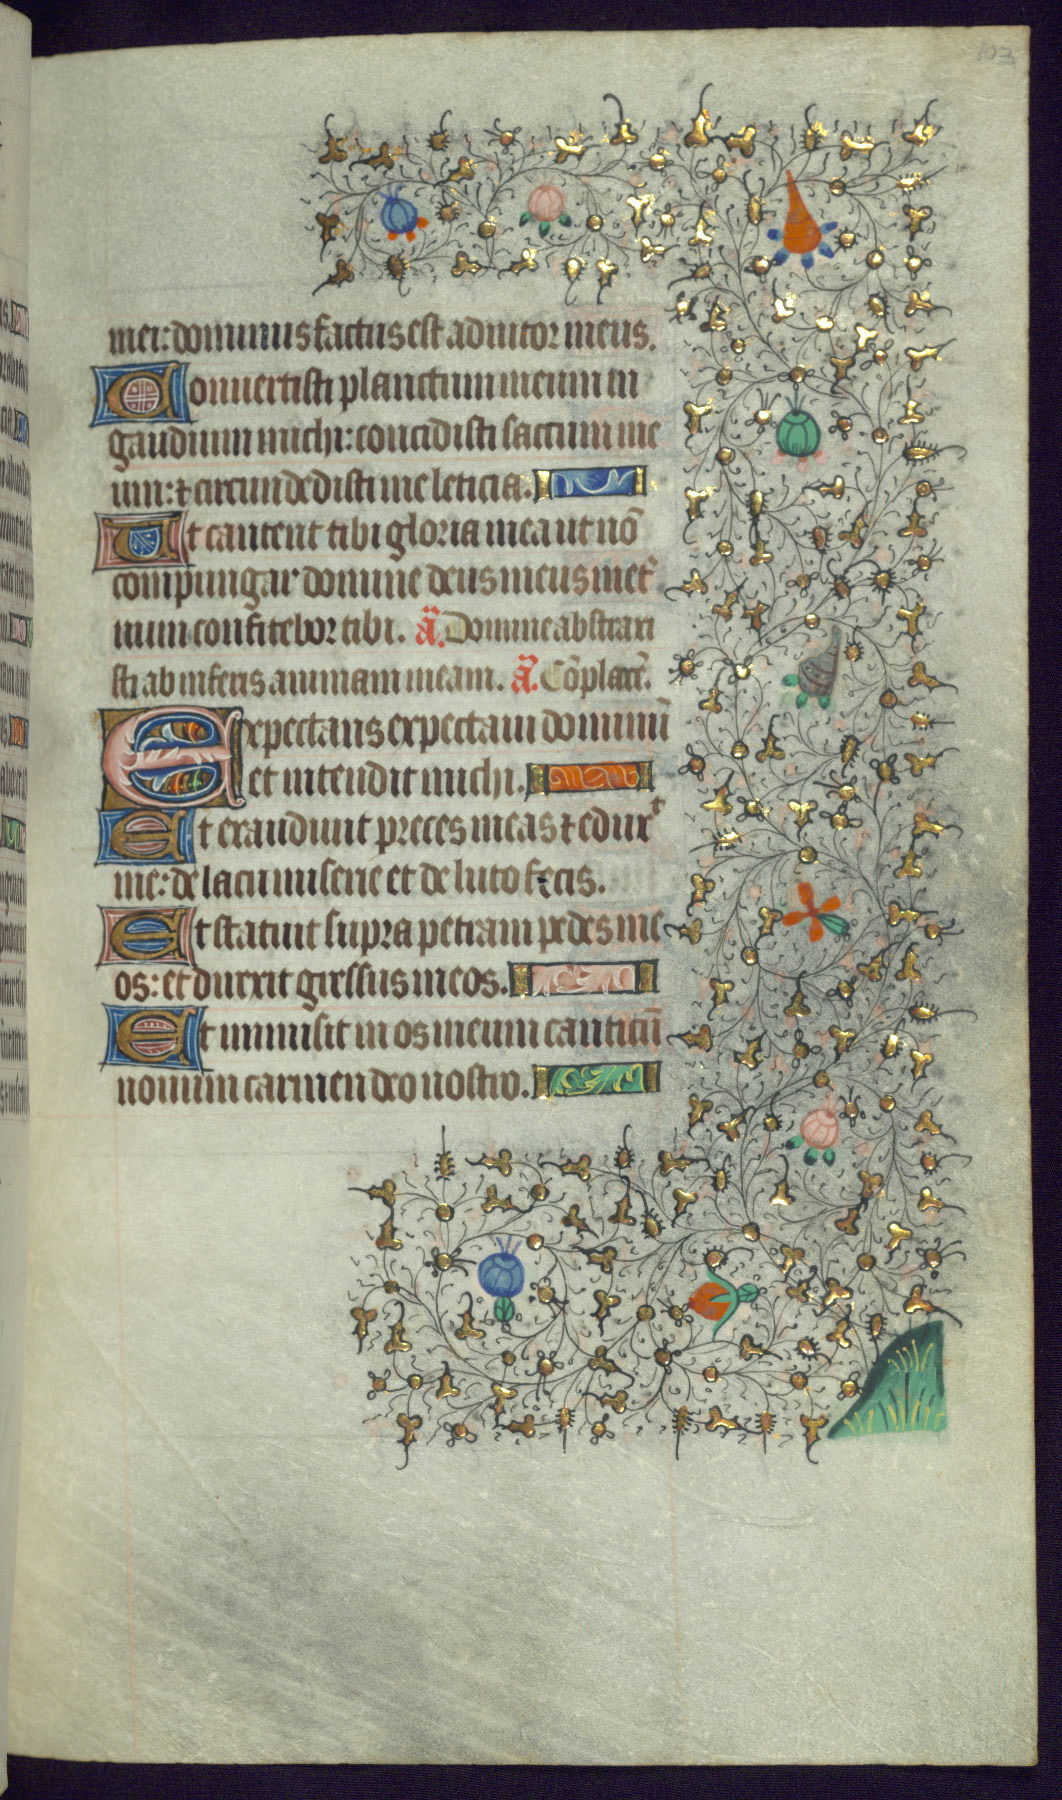 103
mei: dominus factus est adiutor meus.
Conuertisti planctum meum in
gaudium michi: concidisti saccum me
um: ⁊ circundedisti me leticia.
Ut cantent tibi gloria mea ut nō
compungar domine deus meus in et̉
num confitebor tibi. ā. Domine abstraxi
sti ab inferis animam meam. ā. Cōplaceˉ.
Expectans expectaui dominū
et intendit michi.
Et exaudiuit preces meas ⁊ eduxᵗ
me: de lacu miserie et de luto fecis.
Et statuit supra petram pedes me
os: et durexit gressus meos.
Et immisit in os meum canticū
nouum carmen deo nostro.